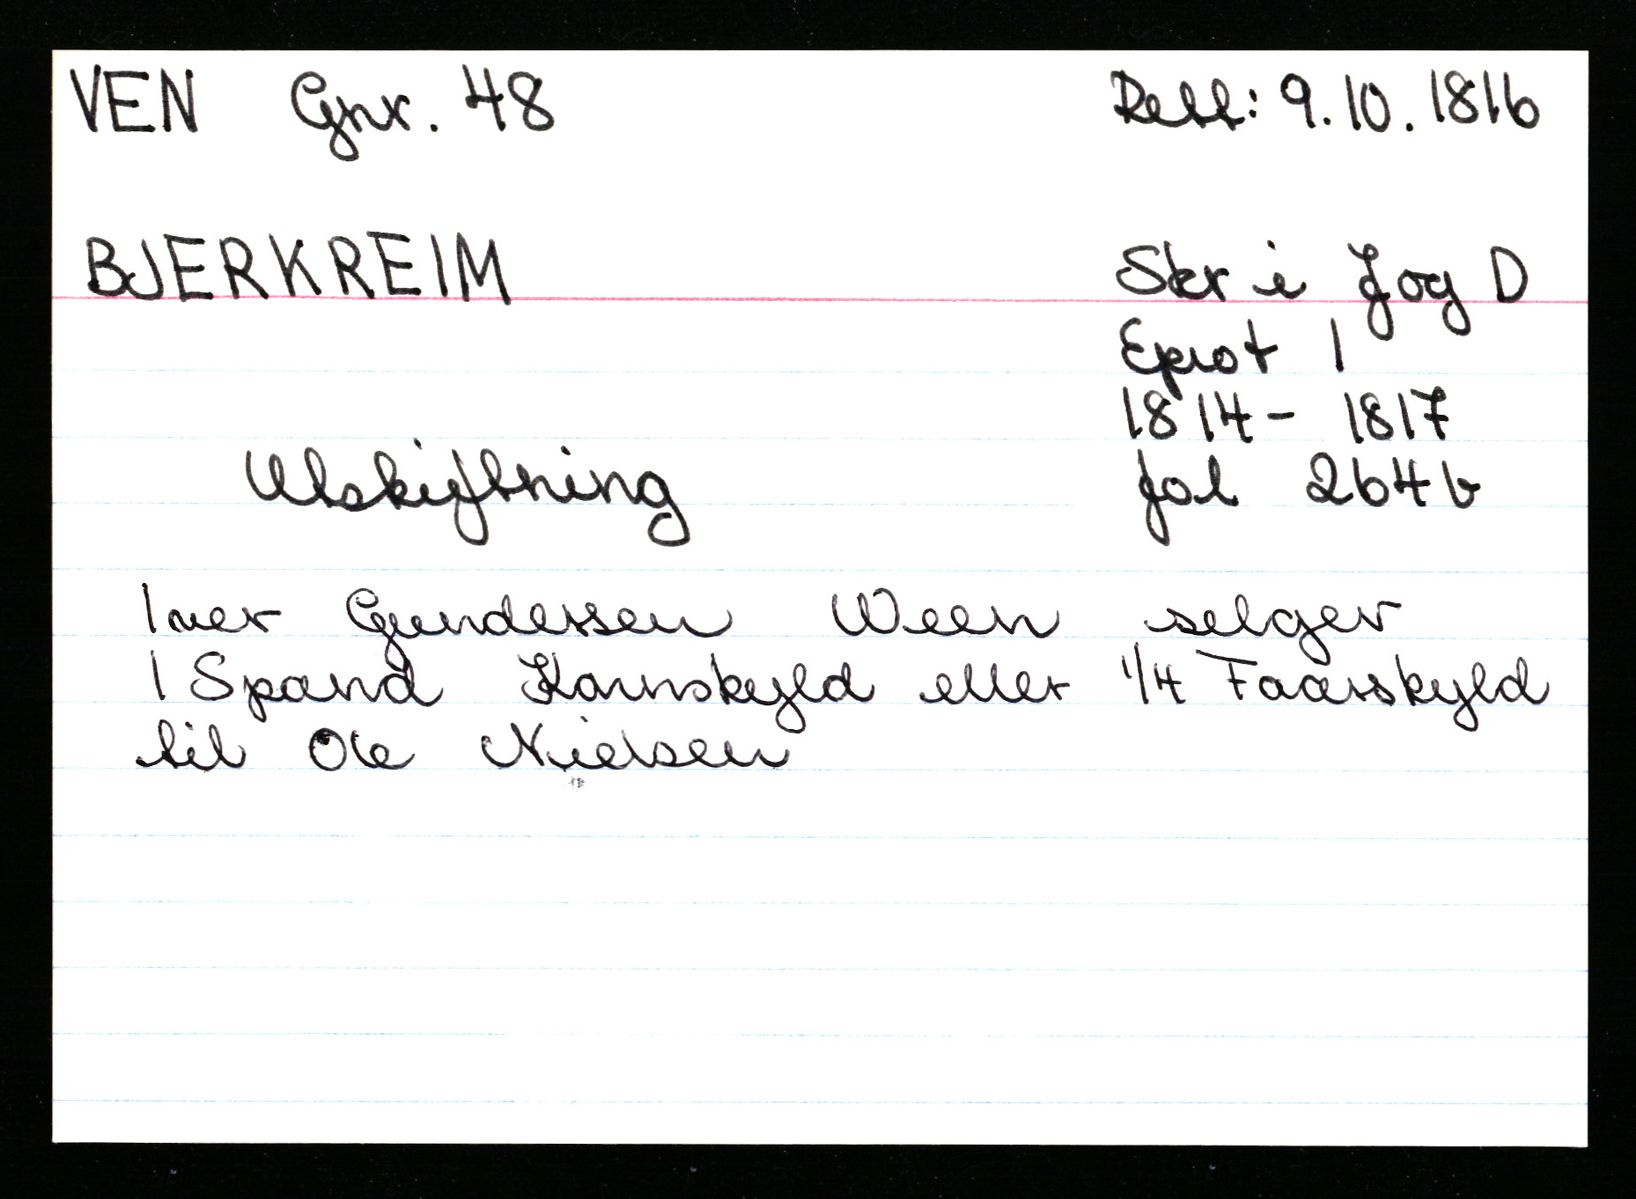 VEN Gnr. 48
Rett: 9.10.1816
BJERKREIM
Skr i J og D
Eprot 1
1814 - 1817
fol 264 b
Utskiftning
Iver Gundersen Ween selger
1 Spand Kornskyld eller 1/4 Faarskyld
til Ole Nielsen